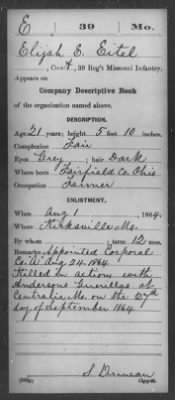 E 39 Mo.
Elijah E. Eitel
, Co A, 39 Reg't Missouri Infantry.
Appears on
Company Descriptive Book
of the organization named above.
DESCRIPTION.
Age 21 years; height 5 feet 10 inches.
Complexion Fair
Eyes Grey ; hair Dark
Where born Fairfield Co Ohio
Occupation Farmer
ENLISTMENT.
When Aug 1 , 1864.
Where Kirksville Mo.
By whom ; term 12 mos.
Remarks Appointed Corporal
Co A Aug 24, 1864
Killed in action with
Andersons Guerillas at
Centralia Mo. on the 27th
day of September 1864
S Duncan
Copyist.